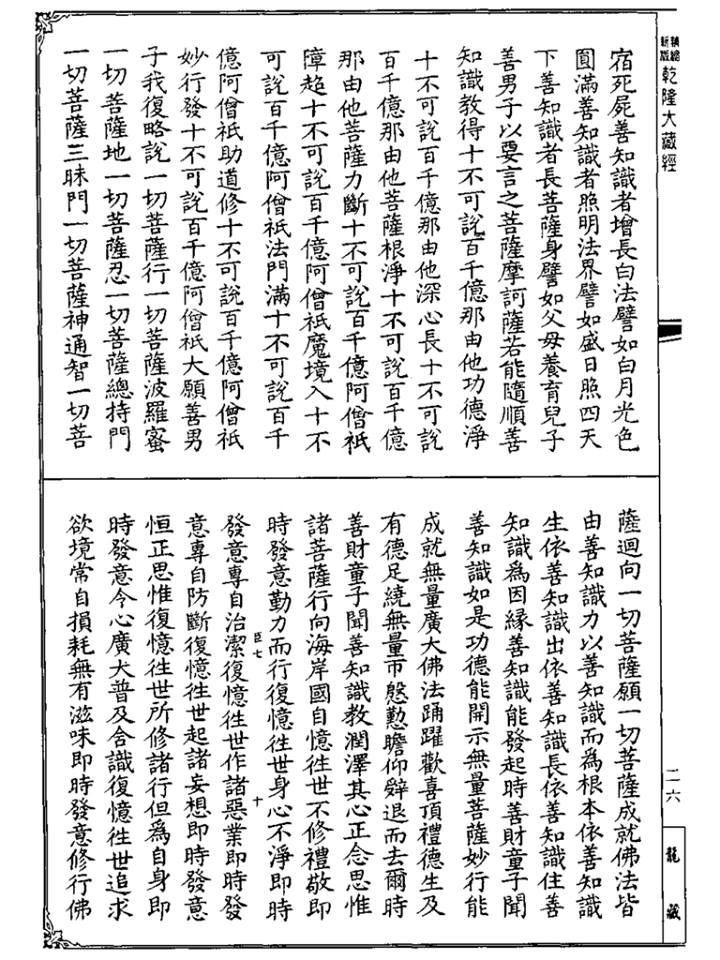 新編縮版
乾隆大藏經
宿死屍善知識者增長白法譬如白月光色
圓滿善知識者照明法界譬如盛日照四天
下善知識者長菩薩身譬如父母養育兒子
善男子以要言之菩薩摩訶薩若能隨順善
知識教得十不可說百千億那由他功德淨
十不可說百千億那由他深心長十不可說
百千億那由他菩薩根淨十不可說百千億
那由他菩薩力斷十不可說百千億阿僧祇
障超十不可說百千億阿僧祇魔境入十不
可說百千億阿僧祇法門滿十不可說百千
億阿僧祇助道修十不可說百千億阿僧祇
妙行發十不可說百千億阿僧祇大願善男
子我復略說一切菩薩行一切菩薩波羅蜜
一切菩薩地一切菩薩忍一切菩薩總持門
一切菩薩三昧門一切菩薩神通智一切菩
薩迴向一切菩薩願一切菩薩成就佛法皆
由善知識力以善知識而為根本依善知識
生依善知識出依善知識長依善知識住善
知識為因緣善知識能發起時善財童子聞
善知識如是功德能開示無量菩薩妙行能
成就無量廣大佛法踊躍歡喜頂禮德生及
有德足繞無量帀慇懃瞻仰辭退而去爾時
善財童子聞善知識教潤澤其心正念思惟
諸菩薩行向海岸國自憶往世不修禮敬即
時發意勤力而行復憶往世身心不淨即時
臣七
十
發意專自治潔復憶往世作諸惡業即時發
意專自防斷復憶往世起諸妄想即時發意
恒正思惟復憶往世所修諸行但為自身即
時發意令心廣大普及含識復憶往世追求
欲境常自損耗無有滋味即時發意修行佛
二六
龍藏